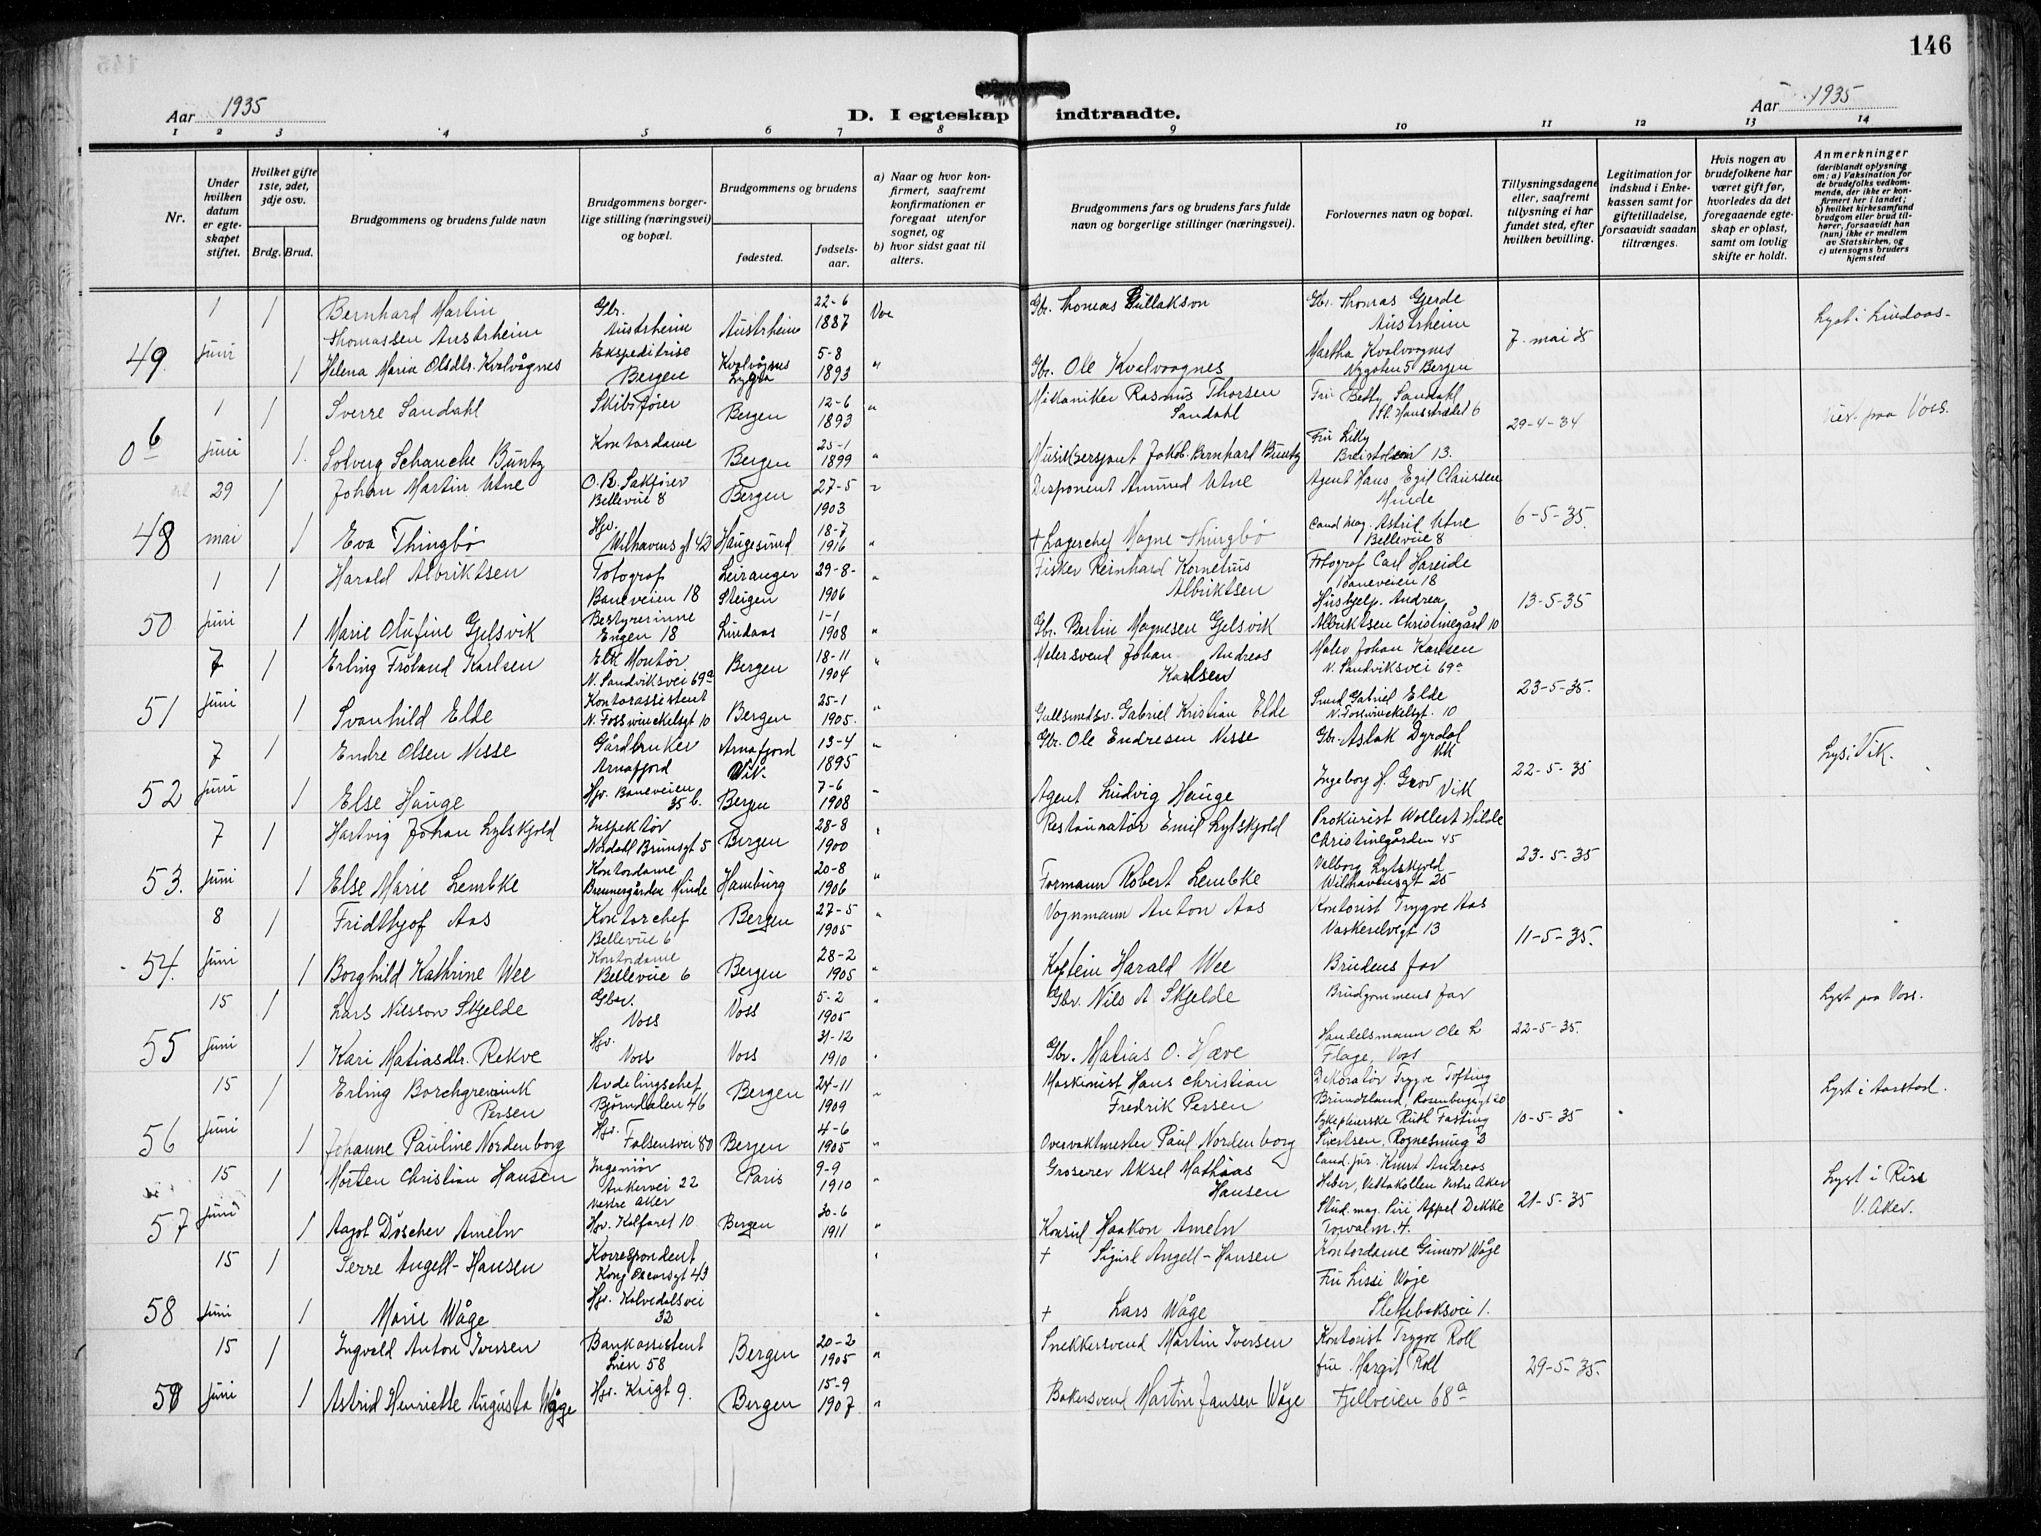 146
Aar 1935
D. I egteskap indtraadte.
Aar 1935
1 2 3 4 5 6 7 8 9 10 11 12 13 14
Nr.
Under hvilken datum er egte-skapet stiftet.
Hvilket gifte 1ste, 2det, 3dje osv.
Brdg. Brud.
Brudgommens og brudens fulde navn
Brudgommens borger-lige stilling (næringsvei) og bopæl.
Brudgommens og brudens
fødested.
fødsels-aar.
a) Naar og hvor kon-firmert, saafremt konfirmationen er foregaat utenfor sognet, og
b) hvor sidst gaat til alters.
Brudgommens fars og brudens fars fulde navn og borgerlige stillinger (næringsvei).
Forlovernes navn og bopæl.
Tillysningsdagene eller, saafremt tillysning ei har fundet sted, efter hvilken bevilling.
Legitimation for indskud i Enke-kassen samt for giftetilladelse, forsaavidt saadan tiltrænges.
Hvis nogen av brudefolkene har været gift før, hvorledes da det foregaaende egte-skap er opløst, samt om lovlig skifte er holdt.
Anmerkninger
(deriblandt oplysning om: a) Vaksination for de brudefolks vedkom-mende, der ikke er kon-firmert her i landet; b) hvilket kirkesamfund brudgom eller brud til-hører, forsaavidt han (hun) ikke er medlem av Statskirken, og c) utensogns bruders hjemsted
1 1 Bernhard Martin Gbr. 22-6 Voe Gbr. Thomas Gullakson Gbr. Thomas Gjerde Lyst i Lindaas
Thomassen Austrheim Austrheim Austrheim 1887 Austrheim
49 juni 1 Helena Marie Olsdtr. Kvalvågnes Ekspeditrise Bergen Kvalvågnes Lygra 5-8 1893 " Gbr. Ole Kvalvaagnes Martha Kvalvaagnes Nygaten 5 Bergen 7. mai 35
1 1 Sverre Sandahl Skibsfører Bergen 12-6 1893 " Mekaniker Rasmus Thorsen Sandahl Fru Betty Sandahl St. Hansstrædet 6 29-4-34 Viet paa Voss.
06 juni 1. Solveig Schanche Buntz Kontordame Bergen 25-1 1899 " Musiksersjant Jakob Bernhard Buntz Fru Lilly 13.
29 1 Johan Martin Utne O.R. Sakfører Bellevue 8 Bergen 27-5 1903 " Disponent Amund Utne Agent Hans Egil Claussen Minde
48 mai 1 Eva Thingbø Hjv. Welhavens gt 42 Haugesund 18-7 1916 " + Lagerchef Magne Thingbø Cand. mag. Astrid Utne Bellevue 8 6-5-35.
1 1 Harald Albriktsen Fotograf Baneveien 18 Leiranger Steigen 29-8- 1906 " Fisker Reinhard Kornelius Albriktsen Fotograf Carl Hareide Baneveien 18
50 juni 1 Marie Olufine Gjelsvik Bestyrerinne Engen 18 Lindaas 1-1 1908 " Gbr. Bertin Magnesen Gjelsvik Hushjelp. Andrea Albriktsen Christinegård 10 13-5-35
7 1 Erling Frøland Karlsen Elk Montør N. Sandviksvei 69a Bergen 18-11 1904 " Malersvend Johan Andreas Karlsen Maler Johan Karlsen N. Sandviksvei 69a
51 juni 1 Svanhild Elde Kontorassistent N. Fosswinckelsgt 10 Bergen 25-1 1905. " Gullsmedsv. Gabriel Kristian Elde Smed Gabriel Elde N. Fosswinckelsgt. 10 23-5-35.
7 1 Endre Olsen Nisse Gårdbruker Arnafjord Arnafjord Vik. 13-4 1895 " Gbr. Ole Endresen Nisse Gbr. Aslak Dyrdal Vik Lys i Vik.
52 juni 1 Else Hauge Hjv. Baneveien 35 b. Bergen 7-6 1908 " Agent Ludvig Hauge Ingeborg H. Grov Vik 22-5-35
7 1 Hartvig Johan Lytskjold Inspektør Nordahl Brunsgt 5 Bergen 28-8 1900 " Restauratør Emil Lytskjold Prokurist Wollert Hilde Christinegården 45
53. juni 1 Else Marie Lembke Kontordame Brennergården Minde Hamburg 20-8 1906 " Formann Robert Lembke Valborg Lytskjold Welhavensgt 25 23-5-35
8 1 Fridthjof Aas Kontorchef Bellevue 6 Bergen 27-5 1905 " Vognmann Anton Aas Kontorist Trygve Aas Vaskerelvgt 13
54. juni 1 Borghild Kathrine Wee Kontordame Bellevue 6 Bergen 28-2 1905 " Kaptein Harald Wee Brudens far 11-5-35.
15 1 Lars Nilsson Skjelde Gbr. Voss Voss 5-2 1905 " Gbr. Nils A. Skjelde Brudgommens far Lyst paa Voss.
55 juni 1 Kari Matiasdtr. Rekve Hjv. Voss Voss 31-12 1910 " Gbr. Matias O. Hæve Handelsmann Ole L Flage, Voss 22-5-35.
15 1 Erling Borchgrevink Persen Avdelingschef Bjørndalen 46 Bergen 24-11 1909 " Maskinist Hans Christian Fredrik Persen Dekoratør Trygve Tofting Brundtland, Rosenbergsgt 20 Lyst i Aarstad.
56 juni 1 Johanne Pauline Nordenborg Hjv. Falsensvei 80 Bergen 4-6 1905 " Overvaktmester Paul Nordenborg Sykepleierske Ruth Fasting Sivertsen, Rognesmug 3 10-5-35
15 1 Morten Christian Hansen Ingeniør Ankervei 22 Vestre Aker Paris 9-9 1910 " Groserer Aksel Mathias Hansen Cand. jur. Knut Andreas Heber, Vettakollen Vestre Aker Lyst i Ris V. Aker.
57 juni 1 Aagot Døscher Ameln Hjv. Kalfaret 10 Bergen 30-6 1911 " Konsul Haakon Ameln Stud. mag. Siri Appel Dekke 4. 21-5-35
15 1 Serre Angell-Hansen Korrespondent Kong Oscarsgt 43 " + Sigurd Angell-Hansen Kontordame Gunvor Wåge
58 juni 1 Marie Wåge Hjv. Kalvedalsvei 32 " + Lars Wåge Fru Lissi Wåge Slettebaksvei 1.
15 1 Ingvald Anton Iversen Bankassistent Lien 58 Bergen 20-2 1905 " Snekkersvend Martin Iversen Kontorist Trygve Roll
59 juni 1 Astrid Henriette Augusta Wåge Hjv. Kaigt 9. Bergen 15-9 1907 " Bakersvend Martin Jansen Wåge fru Margit Roll Fjellveien 68a 29-5-35.